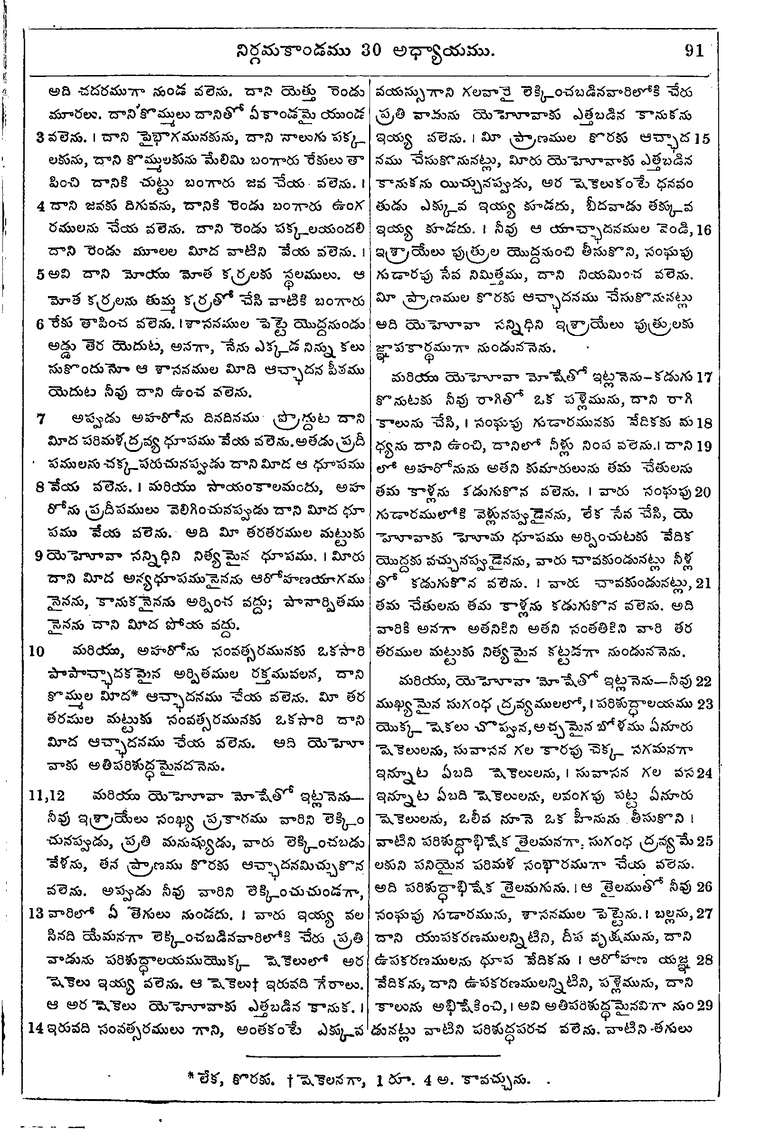 నిర్గమకాండము 30 అధ్యాయము.
91
అది చదరముగా నుండ వలెను. దాని యెత్తు రెండు
మూరలు. దాని కొమ్ములు దానితో ఏకాండమై యుండ
3 వలెను. । దాని పైభాగమునకును, దాని నాలుగు పక్క
లకును, దాని కొమ్మలకును మేలిమి బంగారు రేకులు తా
పించి దానికి చుట్టు బంగారు జవ చేయ వలెను. ।
4 దాని జవకు దిగువను, దానికి రెండు బంగారు ఉంగ
రములను చేయ వలెను. దాని రెండు పక్కలయందలి
దాని రెండు మూలల మీద వాటిని వేయ వలెను. ।
5 అవి దాని మోయు మోత కర్రలకు స్థలములు. ఆ
మోత కర్రలను తుమ్మ కర్రతో చేసి వాటికి బంగారు
6 రేకు తాపించ వలెను. । శాసనముల పెట్టె యొద్దనుండు
అడ్డు తెర యెదుట, అనగా, నేను ఎక్కడ నిన్ను కలు
సుకొందునో ఆ శాసనముల మీది ఆచ్ఛాదన పీఠము
యెదుట నీవు దాని ఉంచ వలెను.
7 అప్పుడు అహరోను దినదినము ప్రొద్దుట దాని
మీద పరిమళద్రవ్య ధూపము వేయ వలెను. అతడు ప్రదీ
పములను చక్కపరుచునప్పుడు దాని మీద ఆ ధూపము
8 వేయ వలెను. । మరియు సాయంకాలమందు, అహ
రోను ప్రదీపములు వెలిగించునప్పుడు దాని మీద ధూ
పము వేయ వలెను. అది మీ తరతరముల మట్టుకు
9 యెహోవా సన్నిధిని నిత్యమైన ధూపము. । మీరు
దాని మీద అన్యధూపమునైనను ఆరోహణయాగము
నైనను, కానుకనైనను అర్పించ వద్దు; పానార్పితము
నైనను దాని మీద పోయ వద్దు.
10 మరియు, అహరోను సంవత్సరమునకు ఒకసారి
పాపాచ్ఛాదకమైన అర్పితముల రక్తమువలన, దాని
కొమ్ముల మీద* ఆచ్ఛాదనము చేయ వలెను. మీ తర
తరముల మట్టుకు సంవత్సరమునకు ఒకసారి దాని
మీద ఆచ్ఛాదనము చేయ వలెను. అది యెహో
వాకు అతిపరిశుద్ధమైనదనెను.
11,12 మరియు యెహోవా మోషేతో ఇట్లనెను—
నీవు ఇశ్రాయేలు సంఖ్య ప్రకారము వారిని లెక్కిం
చునప్పుడు, ప్రతి మనుష్యుడు, వారు లెక్కించబడు
వేళను, తన ప్రాణము కొరకు ఆచ్ఛాదనమిచ్చుకొన
వలెను. అప్పుడు నీవు వారిని లెక్కించుచుండగా,
13 వారిలో ఏ తెగులు నుండదు. । వారు ఇయ్య వల
సినది యేమనగా లెక్కించబడినవారిలోకి చేరు ప్రతి
వాడును పరిశుద్ధాలయముయొక్క షెకెలులో అర
షెకెలు ఇయ్య వలెను. ఆ షెకెలు† ఇరువది గేరాలు.
ఆ అర షెకెలు యెహోవాకు ఎత్తబడిన కానుక. ।
14 ఇరువది సంవత్సరములు గాని, అంతకంటే ఎక్కువ
వయస్సుగాని గలవారై లెక్కించబడినవారిలోకి చేరు
ప్రతి వాడును యెహోవాకు ఎత్తబడిన కానుకను
ఇయ్య వలెను. । మీ ప్రాణముల కొరకు ఆచ్ఛాద 15
నము చేసుకొనునట్లు, మీరు యెహోవాకు ఎత్తబడిన
కానుకను యిచ్చునప్పుడు, అర షెకెలుకంటే ధనవం
తుడు ఎక్కువ ఇయ్య కూడదు, బీదవాడు తక్కువ
ఇయ్య కూడదు. । నీవు ఆ యాచ్ఛాదనముల వెండి, 16
ఇశ్రాయేలు పుత్రుల యొద్దనుంచి తీసుకొని, సంఘపు
గుడారపు సేవ నిమిత్తము, దాని నియమించ వలెను.
మీ ప్రాణముల కొరకు ఆచ్ఛాదనము చేసుకొనునట్లు
అది యెహోవా సన్నిధిని ఇశ్రాయేలు పుత్రులకు
జ్ఞాపకార్థముగా నుండుననెను.
మరియు యెహోవా మోషేతో ఇట్లనెను—కడుగు 17
కొనుటకు నీవు రాగితో ఒక పళ్లెమును, దాని రాగి
కాలును చేసి, । సంఘపు గుడారమునకు వేదికకు మ 18
ధ్యను దాని ఉంచి, దానిలో నీళ్లు నింప వలెను. । దాని 19
లో అహరోనును అతని కుమారులును తమ చేతులను
తమ కాళ్లను కడుగుకొన వలెను. । వారు సంఘపు 20
గుడారములోకి వెళ్లునప్పుడైనను, లేక సేవ చేసి, యె
హోవాకు హోమ ధూపము అర్పించుటకు వేదిక
యొద్దకు వచ్చునప్పుడైనను, వారు చావకుండునట్లు నీళ్ల
తో కడుగుకొన వలెను. । వారు చావకుండునట్లు, 21
తమ చేతులను తమ కాళ్లను కడుగుకొన వలెను. అది
వారికి అనగా అతనికిని అతని సంతతికిని వారి తర
తరముల మట్టుకు నిత్యమైన కట్టడగా నుండుననెను.
మరియు, యెహోవా మోషేతో ఇట్లనెను—నీవు 22
ముఖ్యమైన సుగంధ ద్రవ్యములలో, । పరిశుద్ధాలయము 23
యొక్క షెకలు చొప్పున, అచ్చమైన బోళము ఏనూరు
షెకెలులను, సువాసన గల కారపు చెక్క సగమనగా
ఇన్నూట ఏబది షెకెలులను, । సువాసన గల వస 24
ఇన్నూట ఏబది షెకెలులను, లవంగపు పట్ట ఏనూరు
షెకెలులను, ఒలీవ నూనె ఒక హీనును తీసుకొని ।
వాటిని పరిశుద్ధాభిషేక తైలమనగా, సుగంధ ద్రవ్యమే 25
లకుని పనియైన పరిమళ సంభారముగా చేయ వలెను.
అది పరిశుద్ధాభిషేక తైలమగును. । ఆ తైలముతో నీవు 26
సంఘపు గుడారమును, శాసనముల పెట్టెను. । బల్లను, 27
దాని యుపకరణములన్నిటిని, దీప వృక్షమును, దాని
ఉపకరణములను ధూప వేదికను । ఆరోహణ యజ్ఞ 28
వేదికను, దాని ఉపకరణములన్నిటిని, పళ్లెమును, దాని
కాలును అభిషేకించి, । అవి అతిపరిశుద్ధమైనవిగా నుం 29
డునట్లు వాటిని పరిశుద్ధపరచ వలెను. వాటిని తగులు
* లేక, కొరకు. † షెకెలనగా, 1 రూ. 4 అ. కావచ్చును.